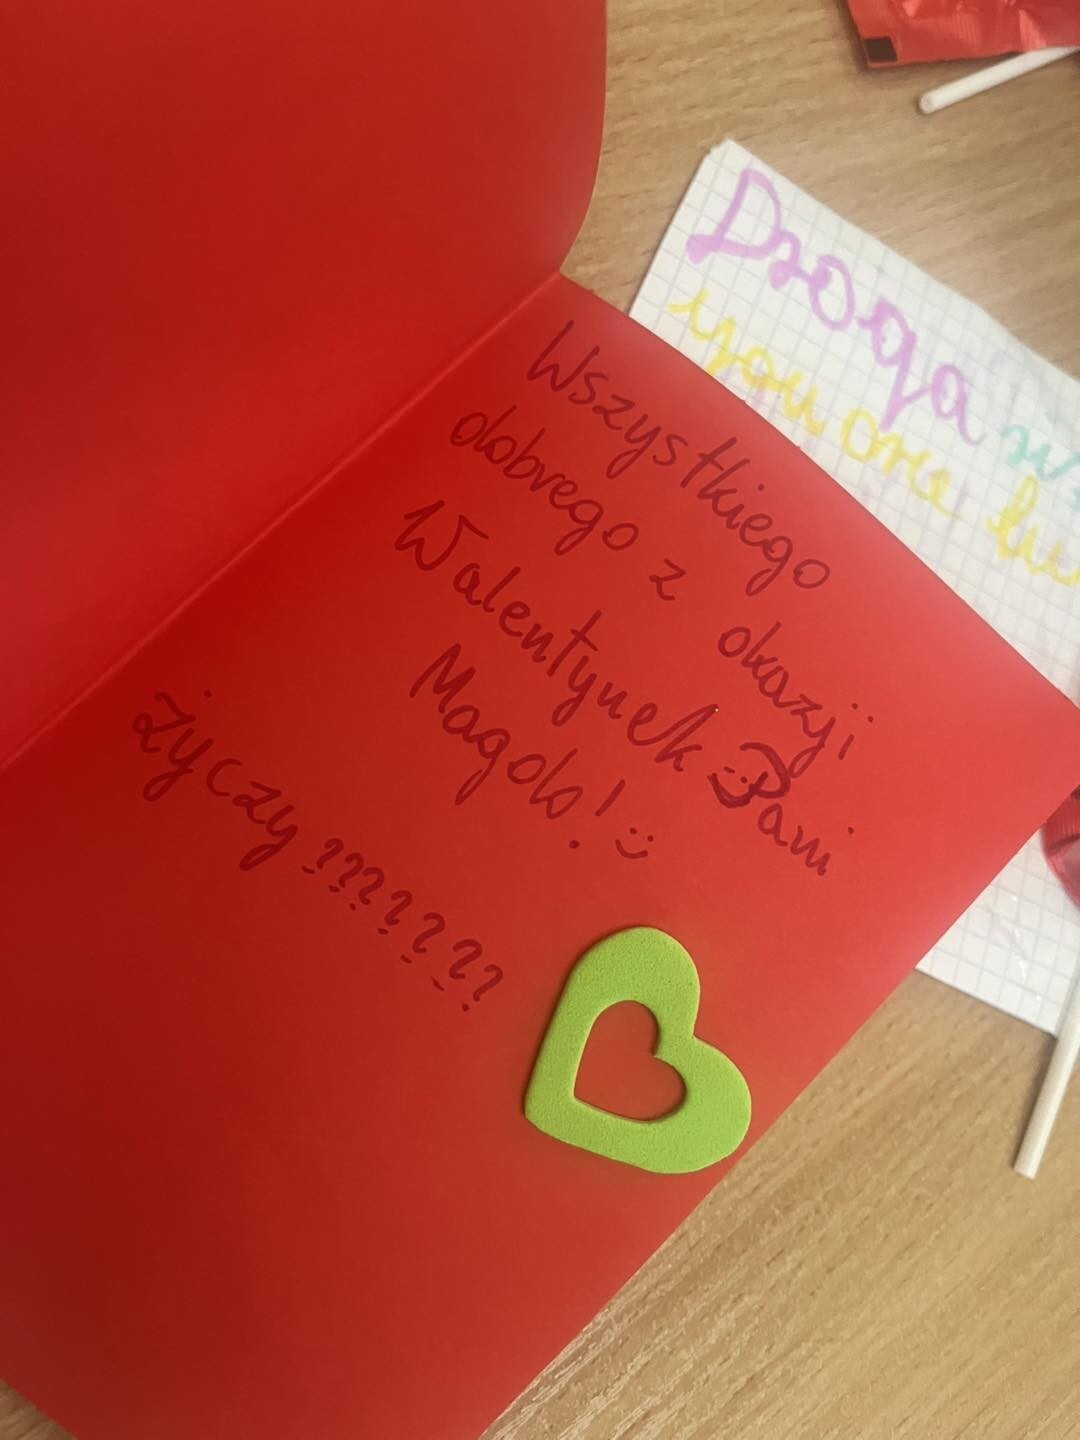 Wszystkiego
dobrego z okazji
Walentynek Pani
Magdo! :)
życzy ????????
Droga
you are